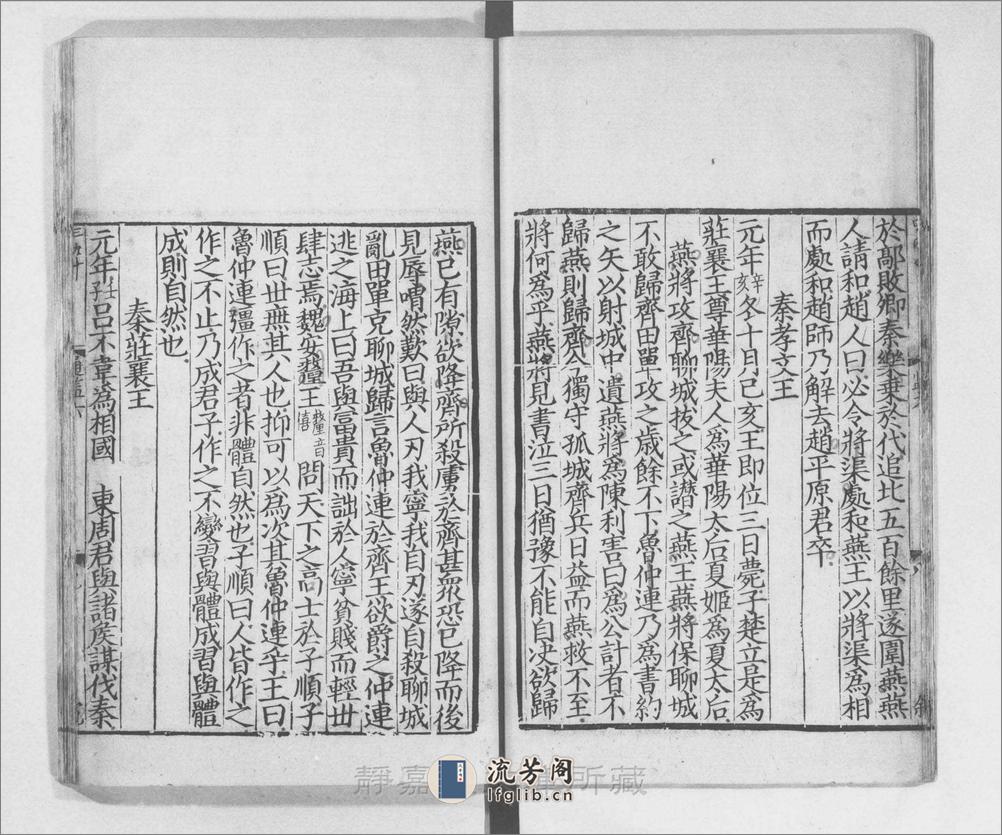 於鄗敗卿秦樂乗於代追比五百餘里遂圍燕燕
人請和趙人曰必令將渠處和燕王以將渠為相
而處和趙師乃解去趙平原君卒
秦孝文王
元年辛亥冬十月已亥王即位三日薨子楚立是為
莊襄王尊華陽夫人為華陽太后夏姬為夏太后
燕將攻齊聊城拔之或譛之燕王燕將保聊城
不敢歸齊田單攻之歲餘不下魯仲連乃為書約
之矢以射城中遺燕將為陳利害曰為公計者不
歸燕則歸齊今獨守孤城齊兵日益而燕救不至
將何為乎燕將見書泣三日猶豫不能自决欲歸
燕已有隙欲降齊所殺虜於齊甚衆恐已降而後
見辱喟然歎曰與人刃我寧我自刃遂自殺聊城
亂田單克聊城歸言魯仲連於齊王欲爵之仲連
逃之海上曰吾與富貴而詘於人寧貧賤而輕世
肆志焉魏安釐王釐音僖問天下之高士於子順子
順曰世無其人也抑可以為次其魯仲連乎王曰
魯仲連彊作之者非體自然也子順曰人皆作之
作之不止乃成君子作之不變習與體成習與體
成則自然也
秦莊襄王
元年壬子呂不韋為相國 東周君與諸侯謀伐秦
靜嘉 所藏
流芳阁
lfglib.cn